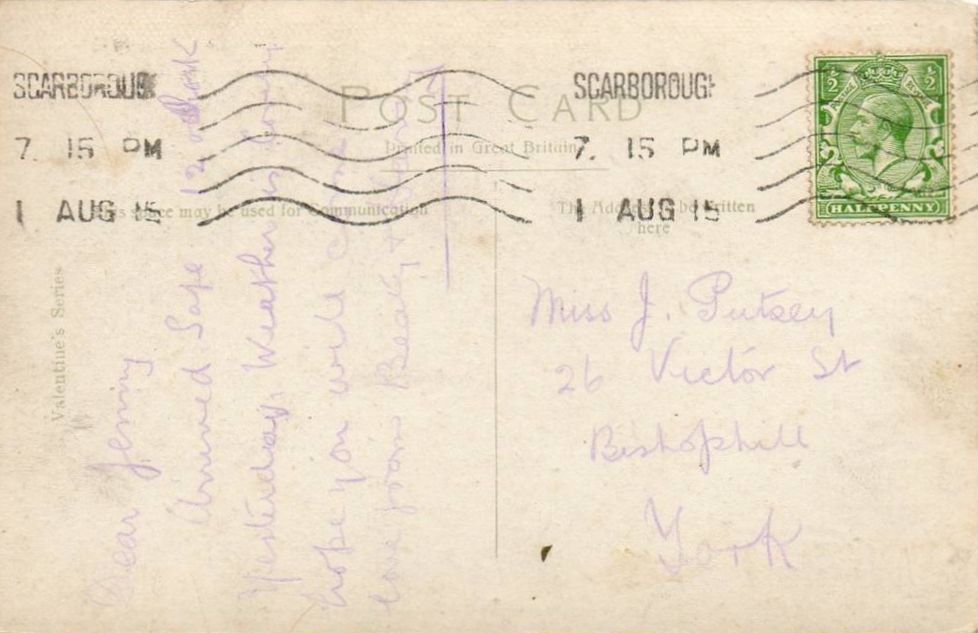 SCARBOROUGH
7. 15 PM
1 AUG 15
SCARBOROUGH
7. 15 PM
1 AUG 15
POST CARD
Printed in Great Britain
This space may be used for Communication
The Address to be written
here
Valentine's Series
½ ½
HALFPENNY
Dear Jenny
Arrived Safe 12 oclock
Yesterday, Weather is lovely
hope you will
love from Beaty &
Miss J. Putsey
26 Victor St
Bishophill
York